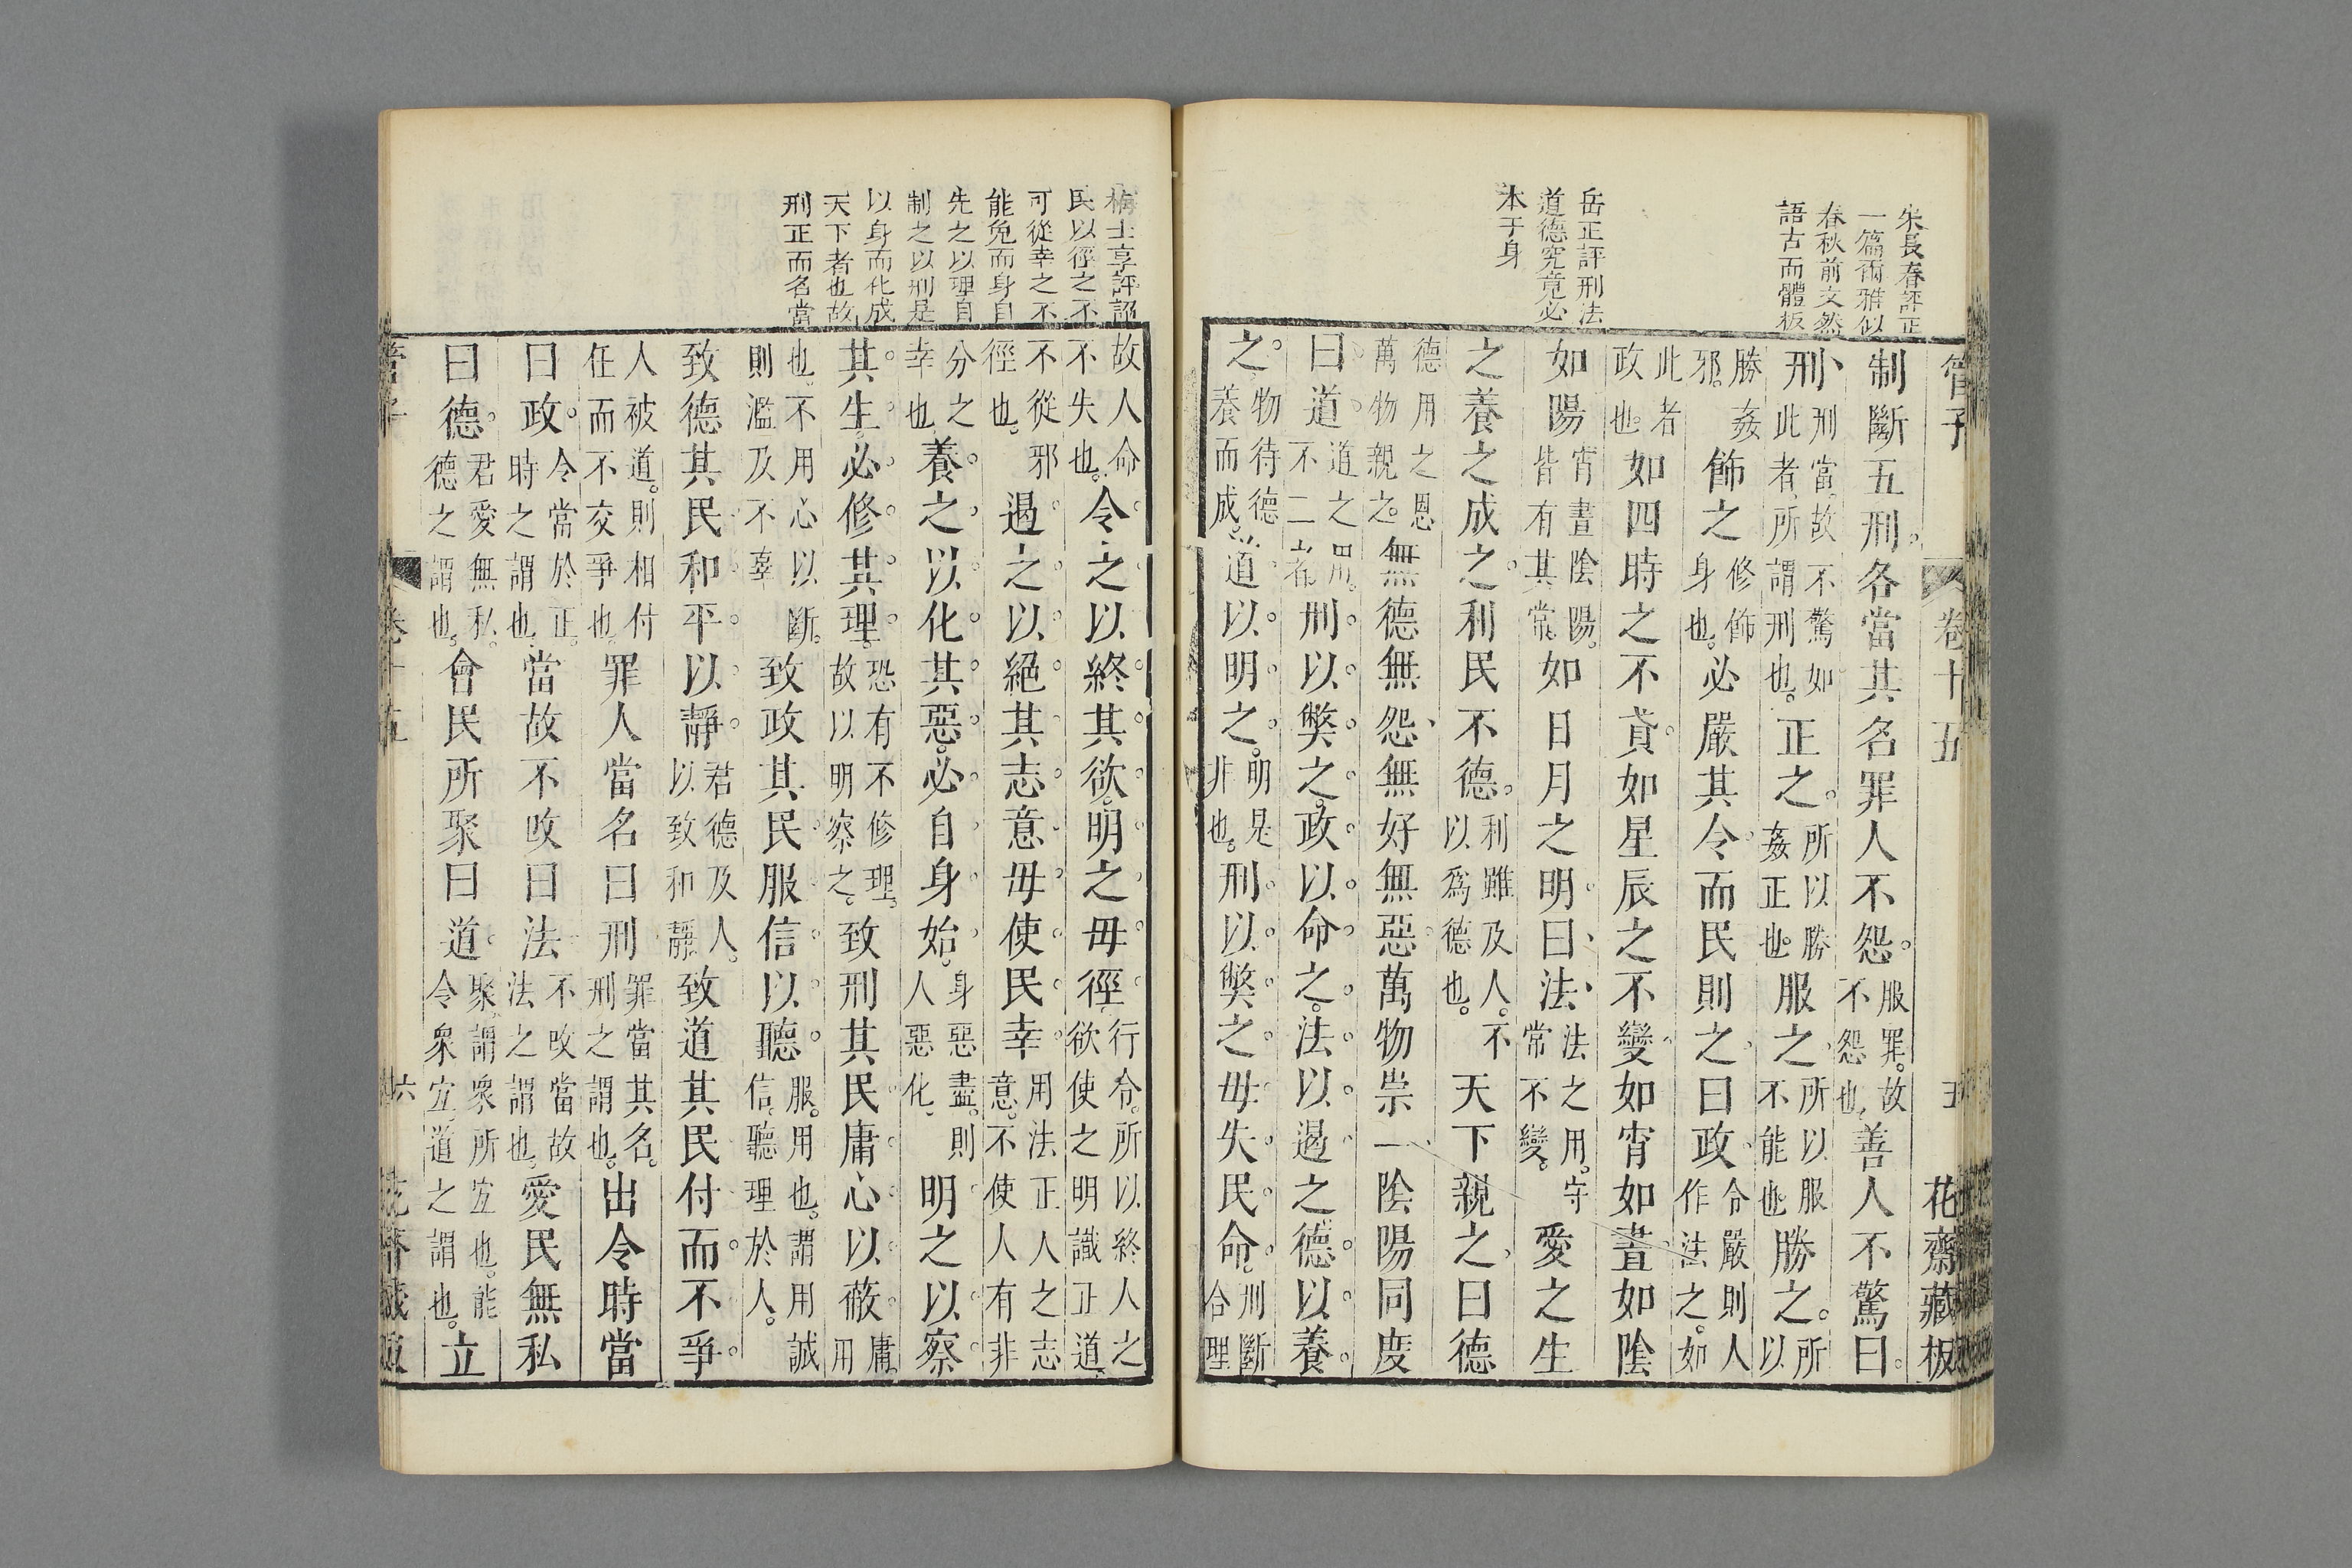 朱長春評正
一篇爾雅似
春秋前文然
語古而體板
岳正評刑法
道德究竟必
本于身
管子 卷十五 五 花齋藏板
制斷五刑各當其名罪人不怨。服罪。故不怨也。善人不驚曰。
刑刑當。故不驚如此者、所謂刑也。正之。所以勝姦正也。服之所以服不能也。勝之。所以
勝姦邪。飾之修飾身也。必嚴其令而民則之曰政令嚴則人作法之。如
此者政也。如四時之不貣。如星辰之不變如宵如晝如陰
如陽宵晝陰陽。皆有其常。如日月之明曰法法之用。守常不變。愛之生
之養之成之。利民不德。利雖及人。不以爲德也。天下親之曰德
德用之恩萬物親之。無德無怨無好無惡萬物崇一陰陽同度
曰道道之用。不二者。刑以弊之。政以命之。法以遏之德以養
之。物待德養而成。道以明之。明是非也。刑以弊之毋失民命。刑斷合理
梅士享評詔
民以徑之不
可從幸之不
能免而身自
先之以理自
制之以刑是
以身而化成
天下者也故
刑正而名當
故人命不失也。令之以終其欲。明之毋徑行令。所以終人之欲使之明識正道、
不從邪徑也。遏之以絕其志意毋使民幸用法正人之志意。不使人有非
分之幸也。養之以化其惡。必自身始。身惡盡。則人惡化。明之以察
其生必修其理。恐有不修理。故以明察之。致刑其民庸心以蔽庸用
也。不用心以斷。則濫及不辜致政其民服信以聽服。用也。謂用誠信。聽理於人。
致德其民和平以靜君德及人。以致和靜。致道其民付而不爭
人被道。則相付任而不交爭也罪人當名曰刑罪當其名。刑之謂也。出令時當
曰政。令當於正。時之謂也。當故不改曰法不改當故法之謂也。愛民無私
曰德。君愛無私。德之謂也。會民所聚曰道聚。謂衆所宜也。能令衆宜道之謂也。立
管子 卷十五 六 花齋藏板